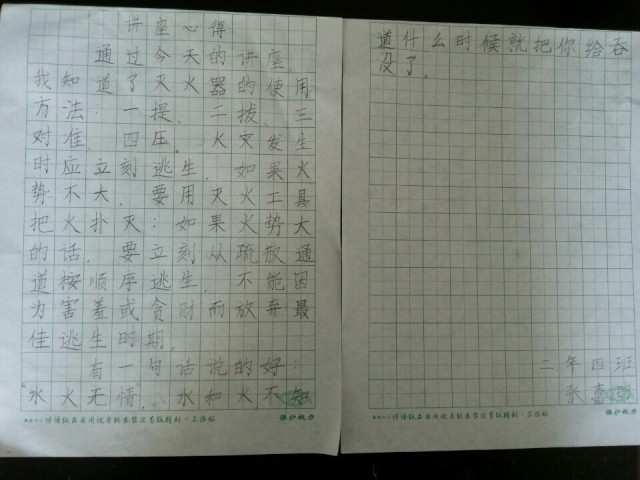 讲座心得
通过今天的讲座，
我知道了灭火器的使用
方法：一提，二拔，三
对准，四压。火灾发生
时应立刻逃生，如果火
势不大，要用灭火工具
把火扑灭：如果火势大
的话，要立刻从疏散通
道按顺序逃生，不能因
为害羞或贪财而放弃最
佳逃生时期。
有一句话说的好：
“水火无情”，水和火不知
保护视力
道什么时候就把你给吞
没了。
二年四班
张嘉
保护视力